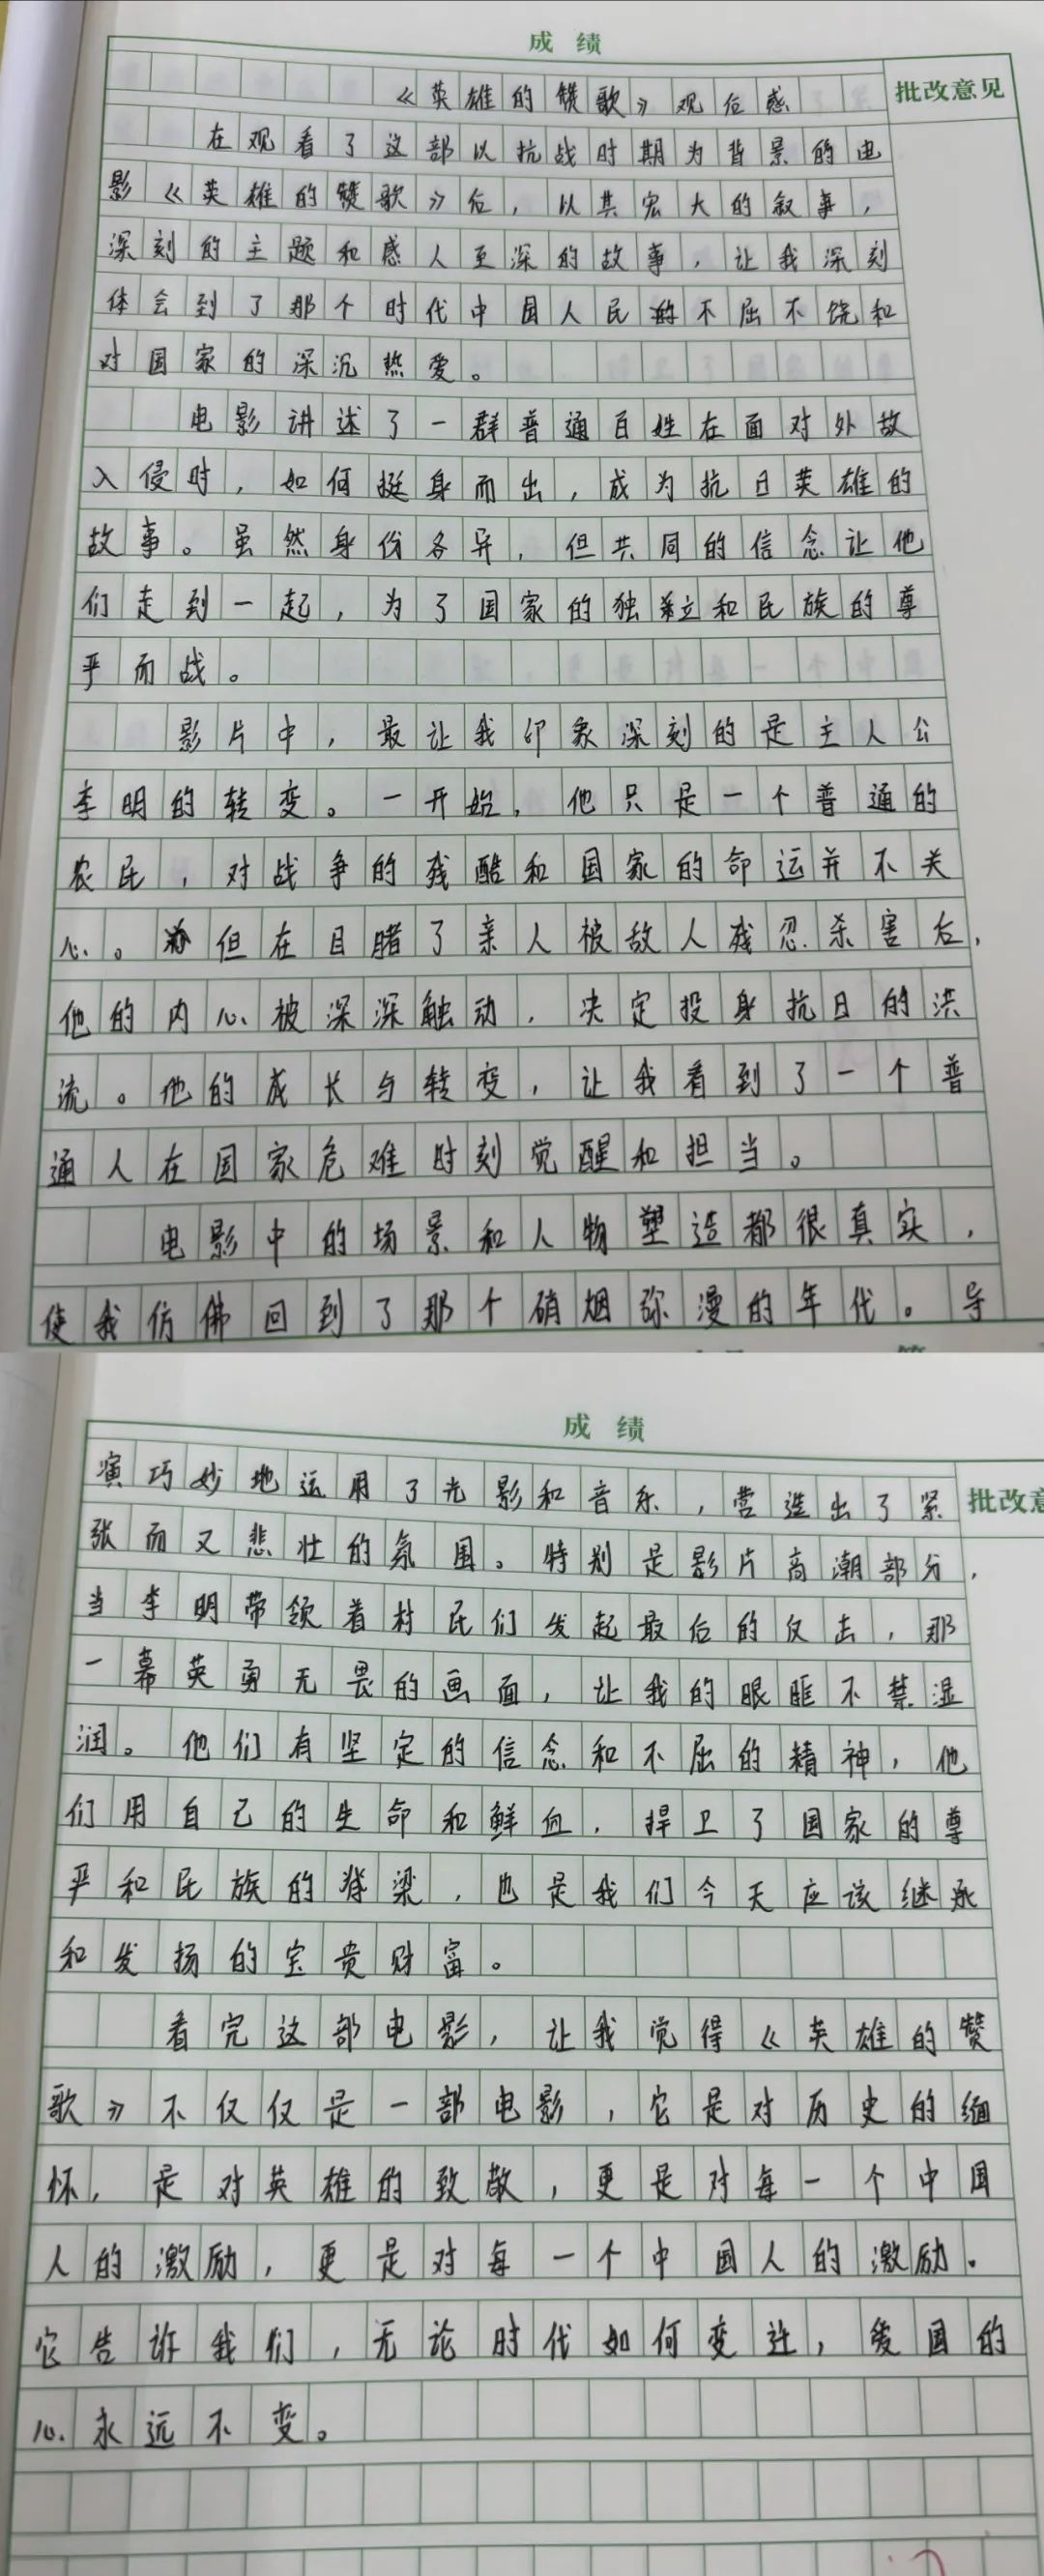 成绩
批改意见
《英雄的赞歌》观后感
在观看了这部以抗战时期为背景的电
影《英雄的赞歌》后，以其宏大的叙事，
深刻的主题和感人至深的故事，让我深刻
体会到了那个时代中国人民的不屈不饶和
对国家的深沉热爱。
电影讲述了一群普通百姓在面对外敌
入侵时，如何挺身而出，成为抗日英雄的
故事。虽然身份各异，但共同的信念让他
们走到一起，为了国家的独立和民族的尊
严而战。
影片中，最让我印象深刻的是主人公
李明的转变。一开始，他只是一个普通的
农民，对战争的残酷和国家的命运并不关
心。但在目睹了亲人被敌人残忍杀害后，
他的内心被深深触动，决定投身抗日的洪
流。他的成长与转变，让我看到了一个普
通人在国家危难时刻觉醒和担当。
电影中的场景和人物塑造都很真实，
使我仿佛回到了那个硝烟弥漫的年代。导
成绩
批改意
演巧妙地运用了光影和音乐，营造出了紧
张而又悲壮的氛围。特别是影片高潮部分，
当李明带领着村民们发起最后的反击，那
一幕英勇无畏的画面，让我的眼眶不禁湿
润。他们有坚定的信念和不屈的精神，他
们用自己的生命和鲜血，捍卫了国家的尊
严和民族的脊梁，也是我们今天应该继承
和发扬的宝贵财富。
看完这部电影，让我觉得《英雄的赞
歌》不仅仅是一部电影，它是对历史的缅
怀，是对英雄的致敬，更是对每一个中国
人的激励，更是对每一个中国人的激励。
它告诉我们，无论时代如何变迁，爱国的
心永远不变。